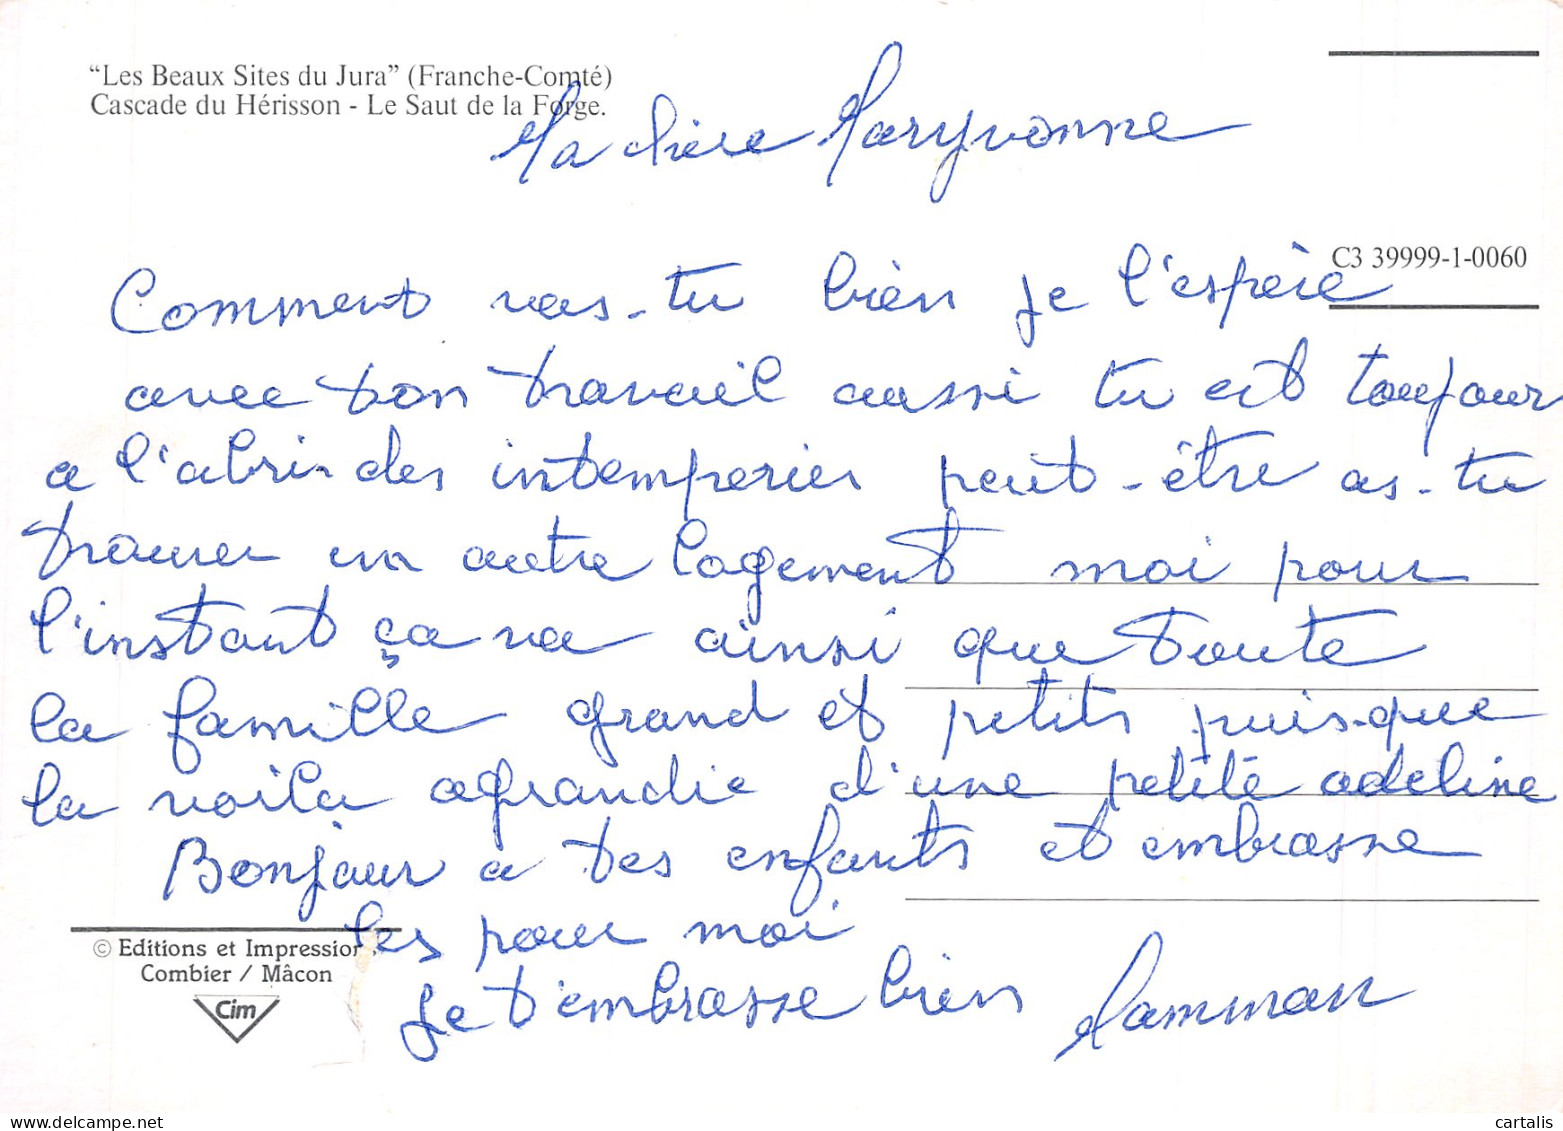 “Les Beaux Sites du Jura” (Franche-Comté)
Cascade du Hérisson - Le Saut de la Forge.
Ma chère Maryvonne
C3 39999-1-0060
Comment vas-tu bien je l'espère
avec ton travail aussi tu est toujour
a l'abri des intemperies peut-être as-tu
trouver un autre logement moi pour
l'instant ça va ainsi que toute
la famille grand et petits puis-que
la voila agrandie d'une petite adeline
Bonjour a tes enfants et embrasse
les pour moi
Je t'embrasse bien Mamman
© Editions et Impression
Combier / Mâcon
Cim
cartalis